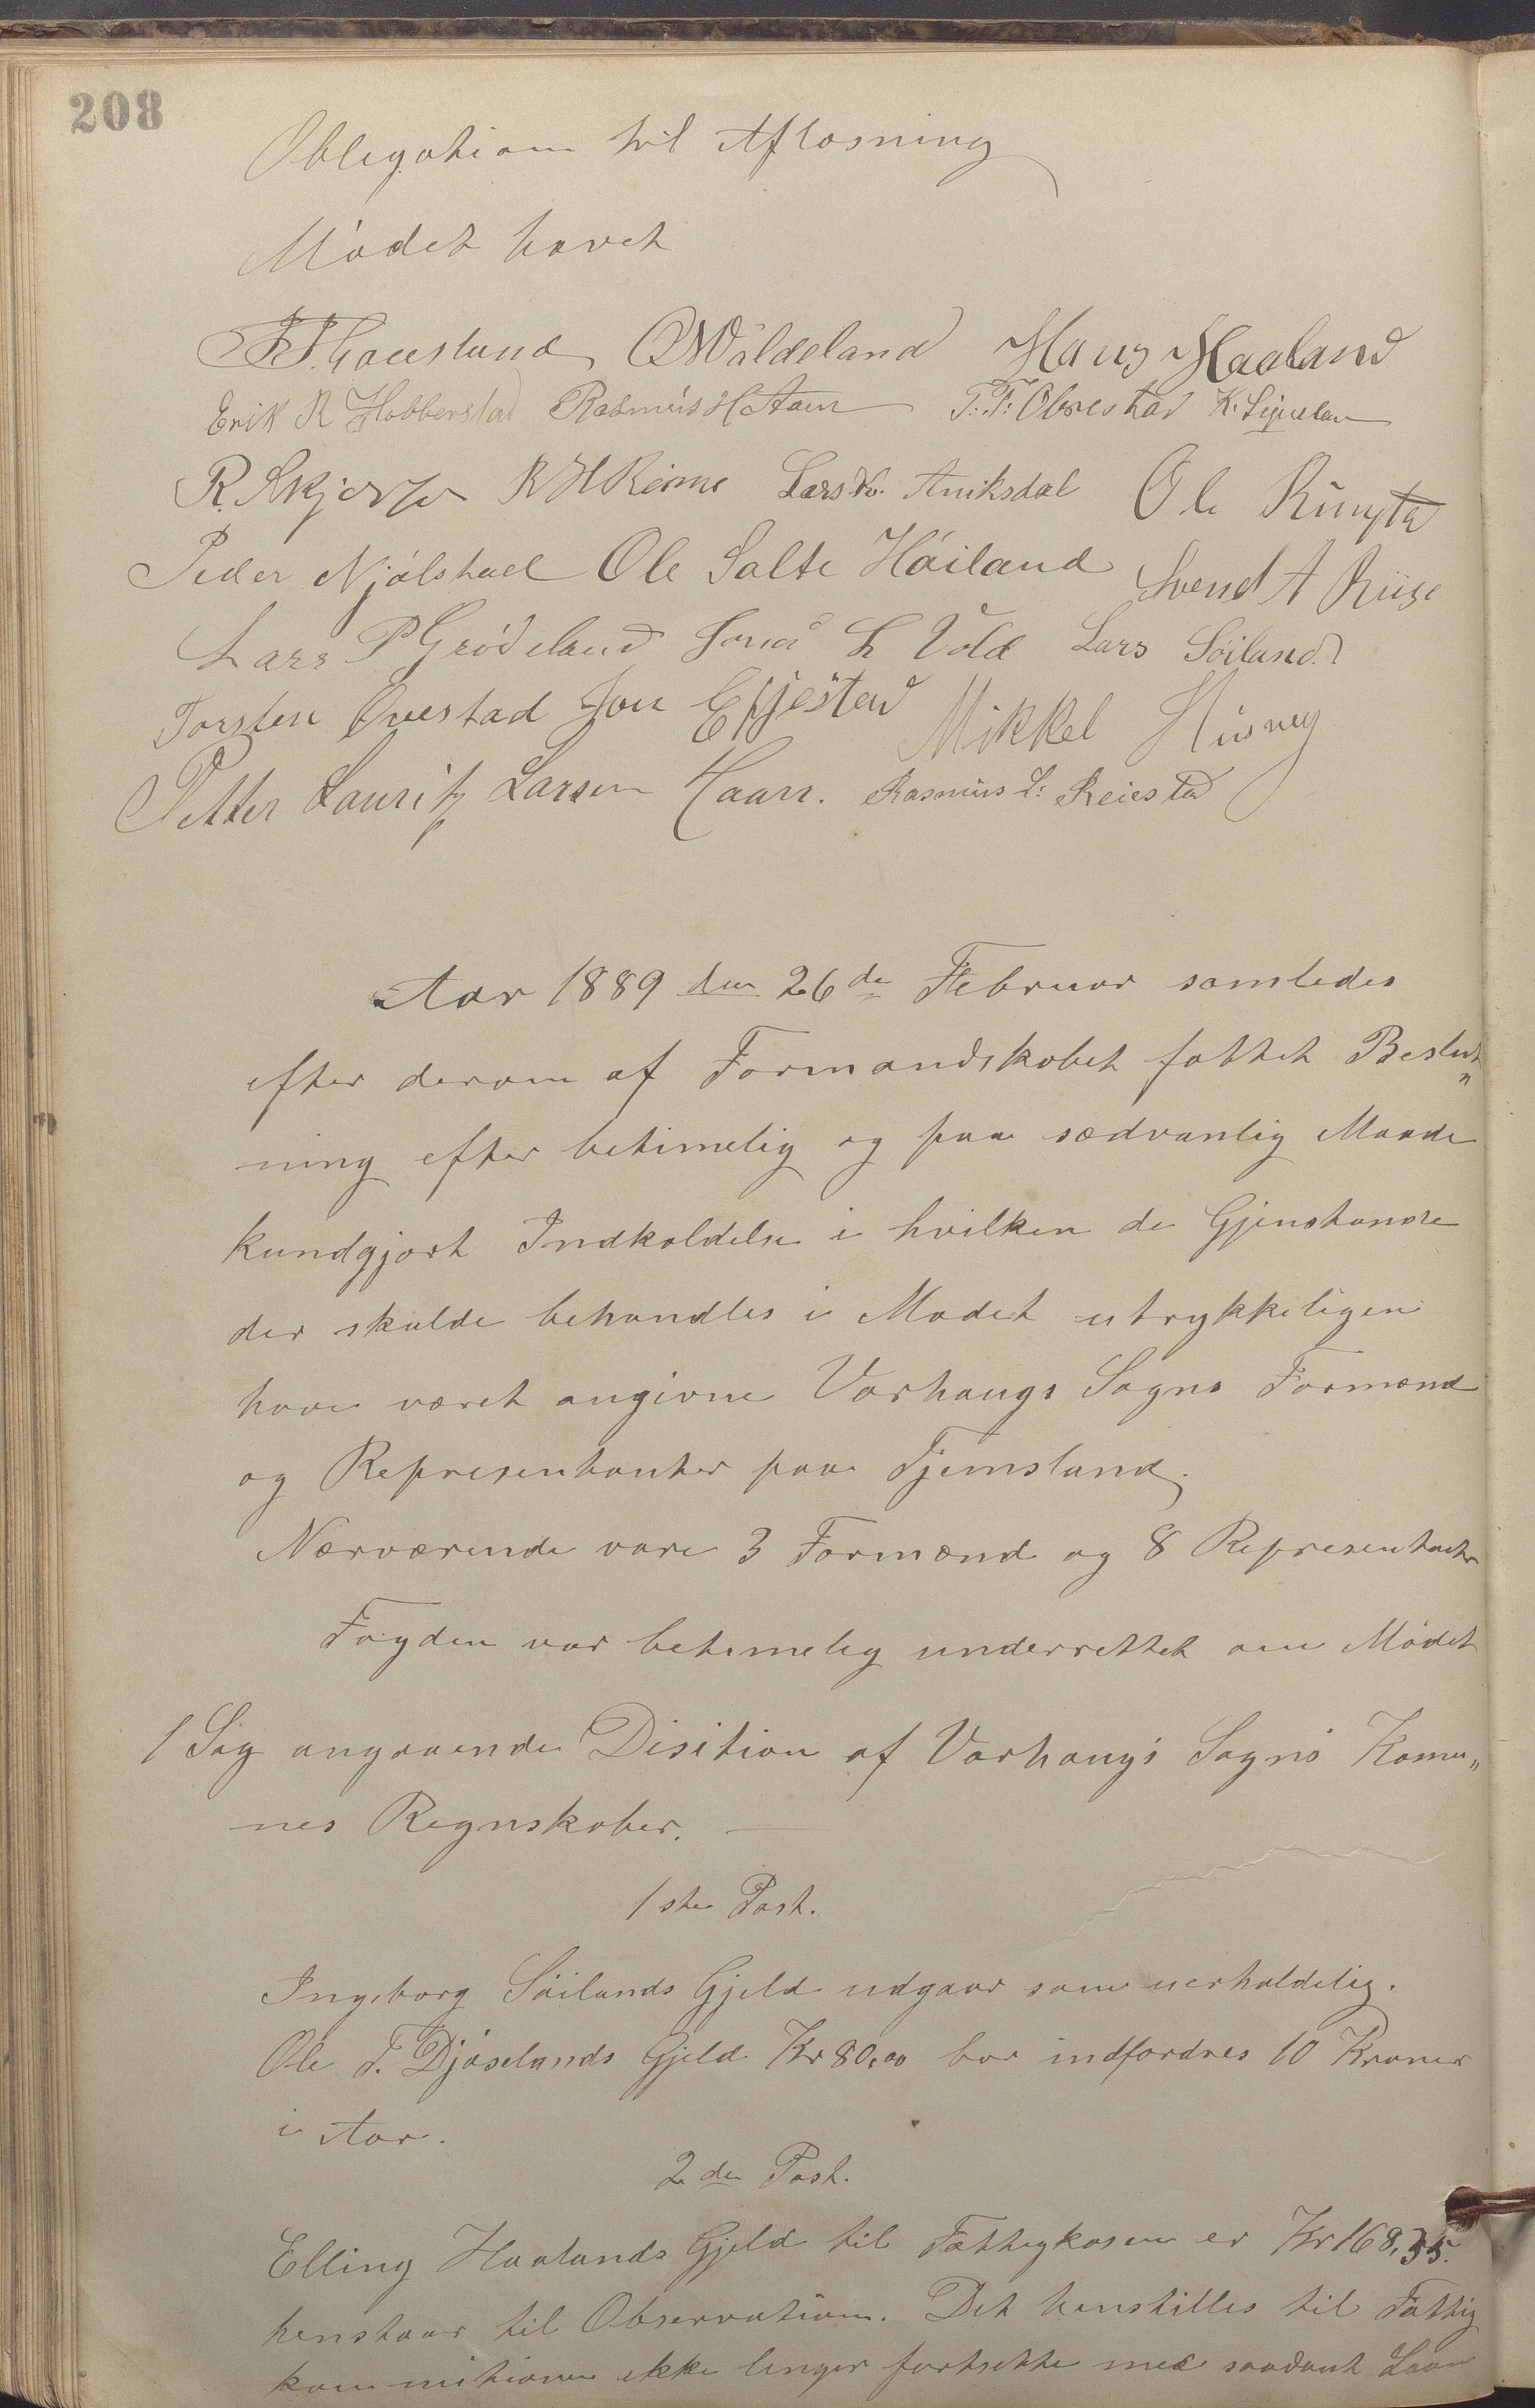 208
Obligation til Afløsning
Mødet hævet
Erik R Hobberstad Rasmus H Aam T. T. Obrestad
R. Skjerpe R H Reime Lars Aniksdal Ole Ringsta
Peder Njølstad Ole Salte Høiland Svend A Riise
Lars P Grødeland Jonas L Vold Lars Søiland
Torsten Ovestad Jon Efjestad Mikkel Husveg
Petter Lauritz Larsen Haarr. Rasmus L: Reiestad
Aar 1889 den 26de Februar samledes
efter derom af Formandskabet fattet Beslut„
ning efter betimelig og paa sædvanlig Maade
kundgjort Indkaldelse i hvilken de Gjenstande
der skulde behandles i Mødet utrykkeligen
have været angivne Varhaugs Sogns Formænd
og Representanter paa Tjemsland.
Nærværende vare 3 Formænd og 8 Representanter
Fogden var betimelig underrettet om Mødet
1 Sag angaaende Disition af Varhaug's Sogns Komu„
nes Regnskaber. —
1ste Post.
Ingeborg Søilands Gjeld udgaar som uerholdelig.
Ole T. Djøselands Gjeld Kr 80,00 bør indfordres 10 Kroner
i Aar.
2den Post.
Elling Haalands Gjeld til Fattigkasen er Kr 168,35.
henstaar til Observation. Det henstilles til Fattig
kommitionen ikke lenger fortsette med saadant Laan